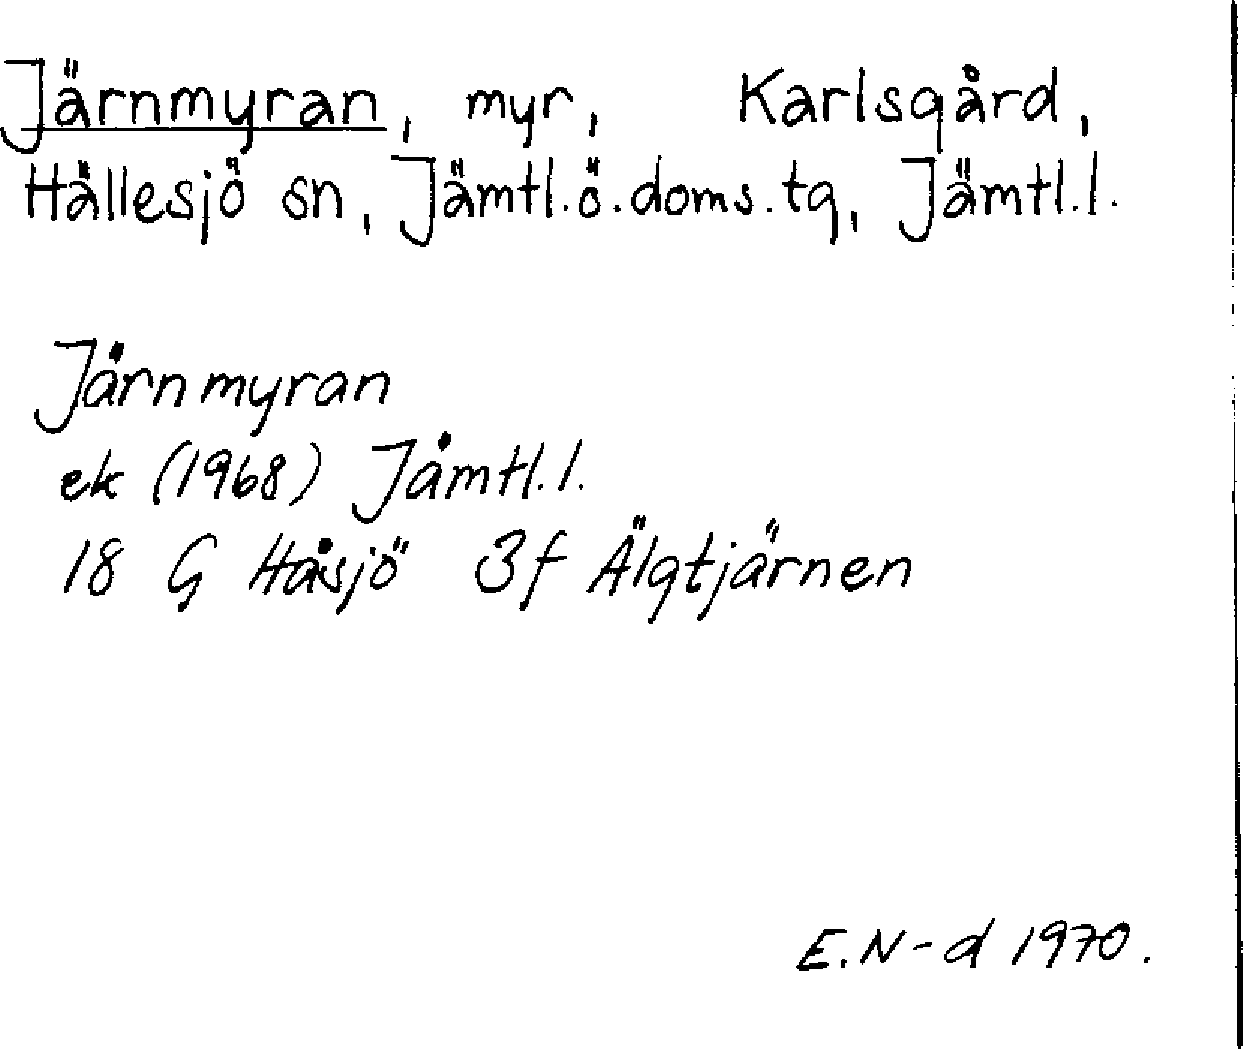 Järnmyran, myr, Karlsgård,
Hällesjö sn, Jämtl.ö.doms.tg, Jämtl.l.
Järnmyran
ek (1968) Jämtl.l.
18 G Håsjö 3f Älgtjärnen
E.N-d 1970.